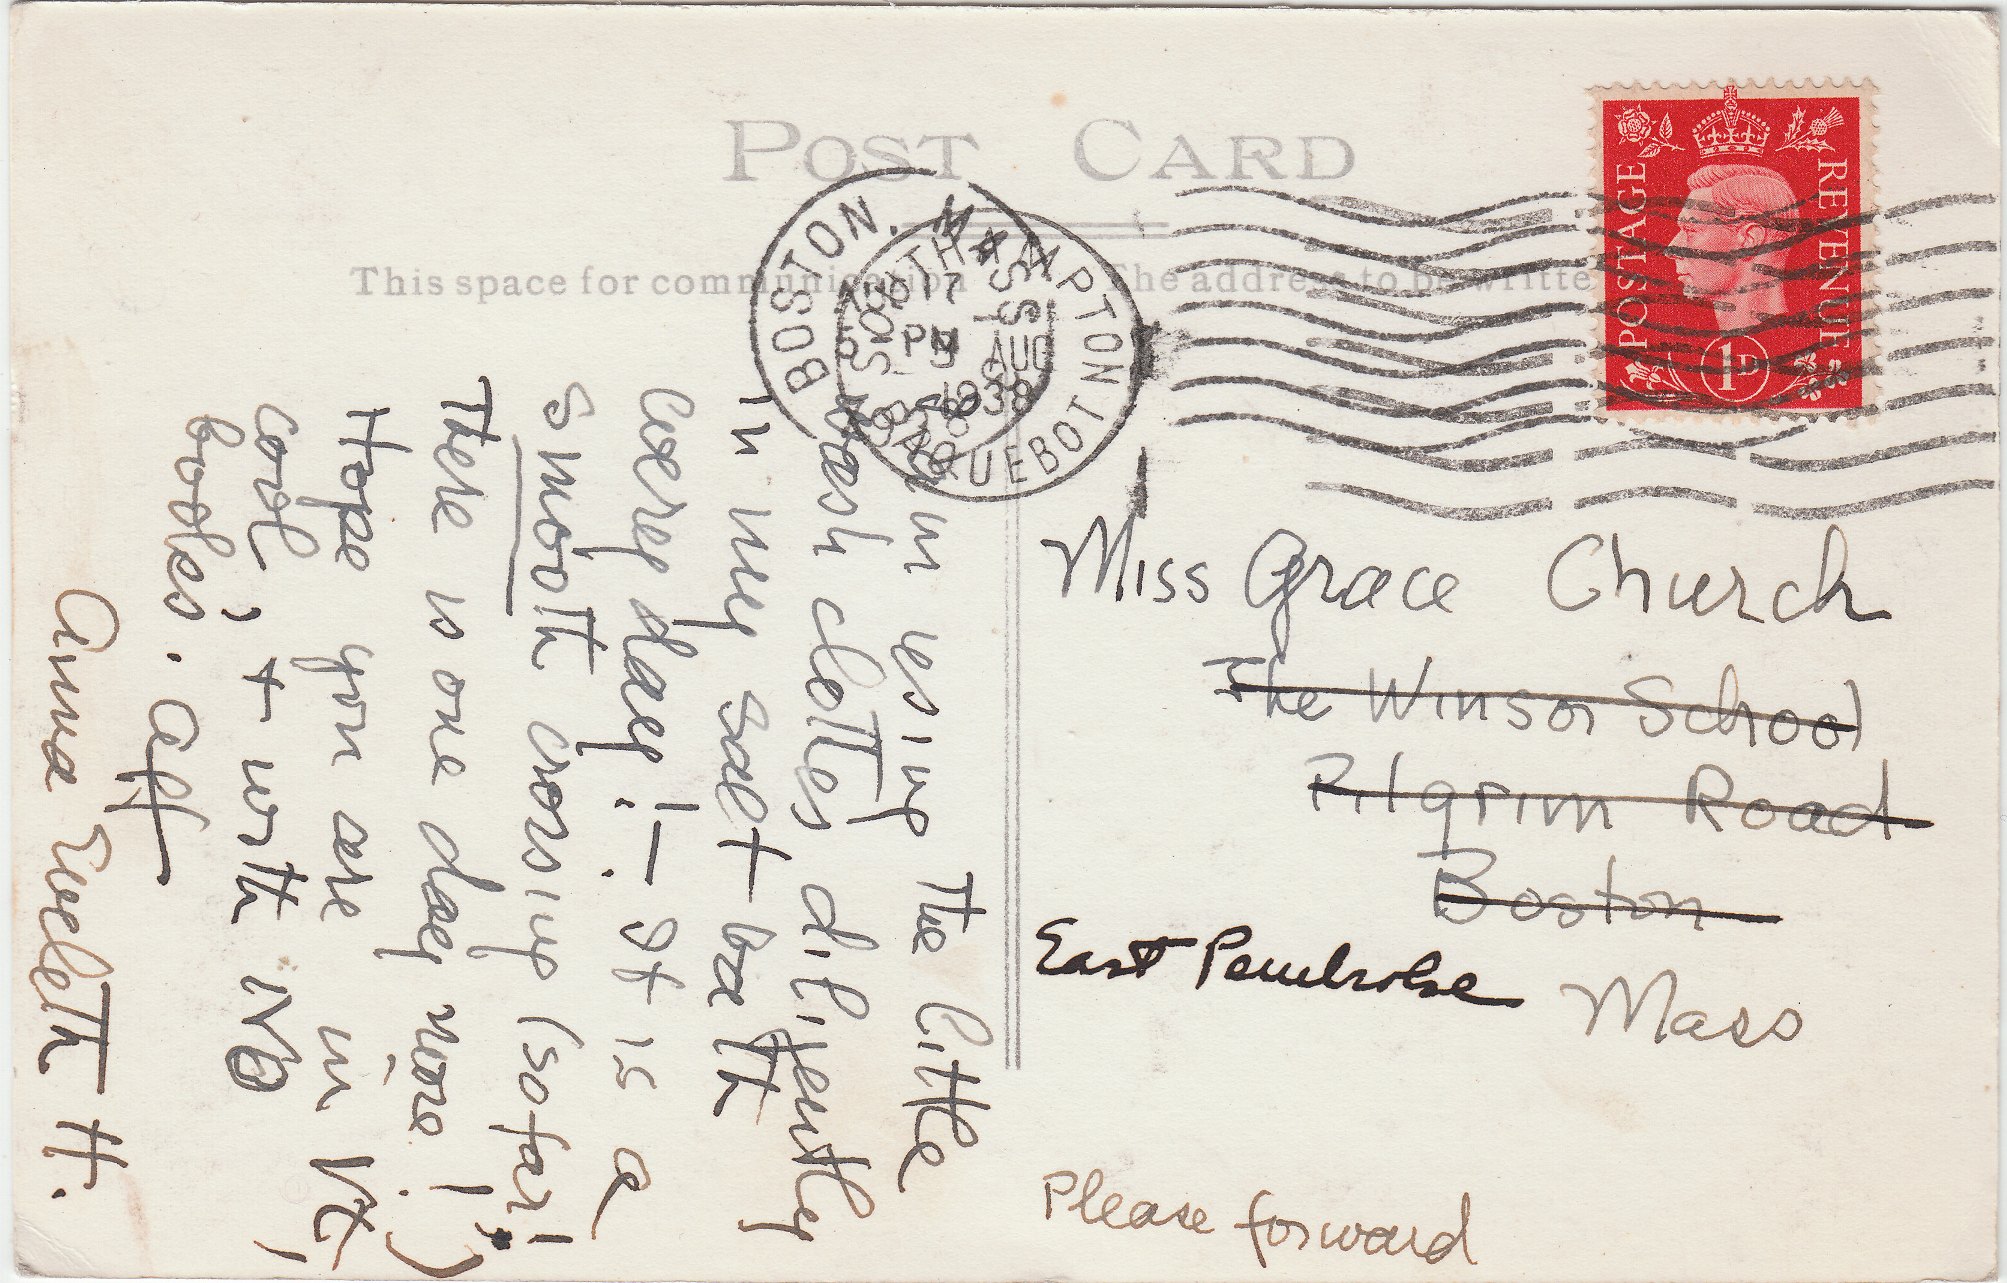 POST CARD
This space for communication
The address to be writte
BOSTON, MASS.
PM
1938
SOUTHAMPTON
AUG
1938
PAQUEBOT
POSTAGE
REVENUE
1D
Am using the little
wash clothes diligently
in my salt bath
every day! – It is a
smooth crossing (so far!
There is one day more!)
Hope you are in Vt,
cool, + with NO
books. Aff
Anna Eveleth H.
Miss Grace Church
The Winsor School
Pilgrim Road
Boston
East Pembroke
Mass
Please forward